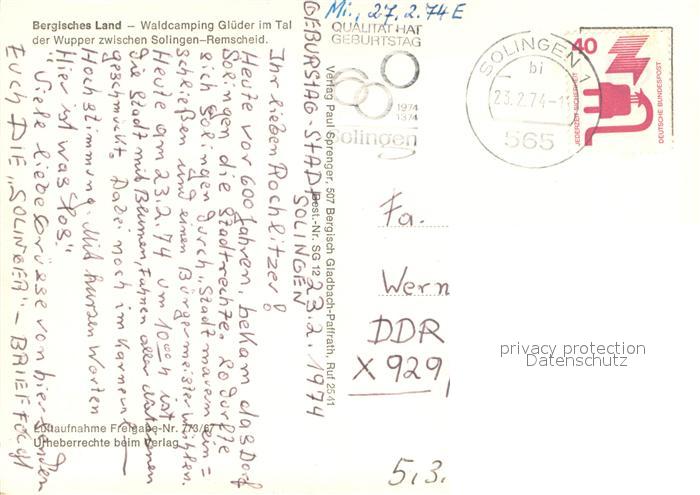 Bergisches Land – Waldcamping Glüder im Tal
der Wupper zwischen Solingen–Remscheid.
Mi., 27.2.74 E
GEBURSTAG-STADT
SOLINGEN 23.2.1974
Ihr lieben Rochlitzer!
Heute vor 600 Jahren, bekam das Dorf
Solingen die Stadtrechte. So durfte
sich Solingen durch „Stadtmauern ein=
schließen und einen Bürgermeister wählen.
Heute am 23.2.74 um 10ºº h ist
die Stadt mit Blumen, Fahnen
geschmückt. Dabei noch im Karneval
Hochstimmung. Mit kurzen Worten
„Hier ist was los“.
Viele liebe Grüsse von hier senden
EUCH DIE „SOLINGER“ – BRIEF FOLGT
Luftaufnahme Freigabe-Nr. 773/67
Urheberrechte beim Verlag
Verlag Paul Sprenger, 507 Bergisch Gladbach-Paffrath, Ruf 25 41
Best.-Nr. SG 12
QUALITÄT HAT
GEBURTSTAG
1974
1374
Solingen
SOLINGEN 1
bi
23.2.74-11
565
40
JEDERZEIT SICHERHEIT
DEUTSCHE BUNDESPOST
Fa.
Wern
DDR
X 929
5.3.
privacy protection
Datenschutz